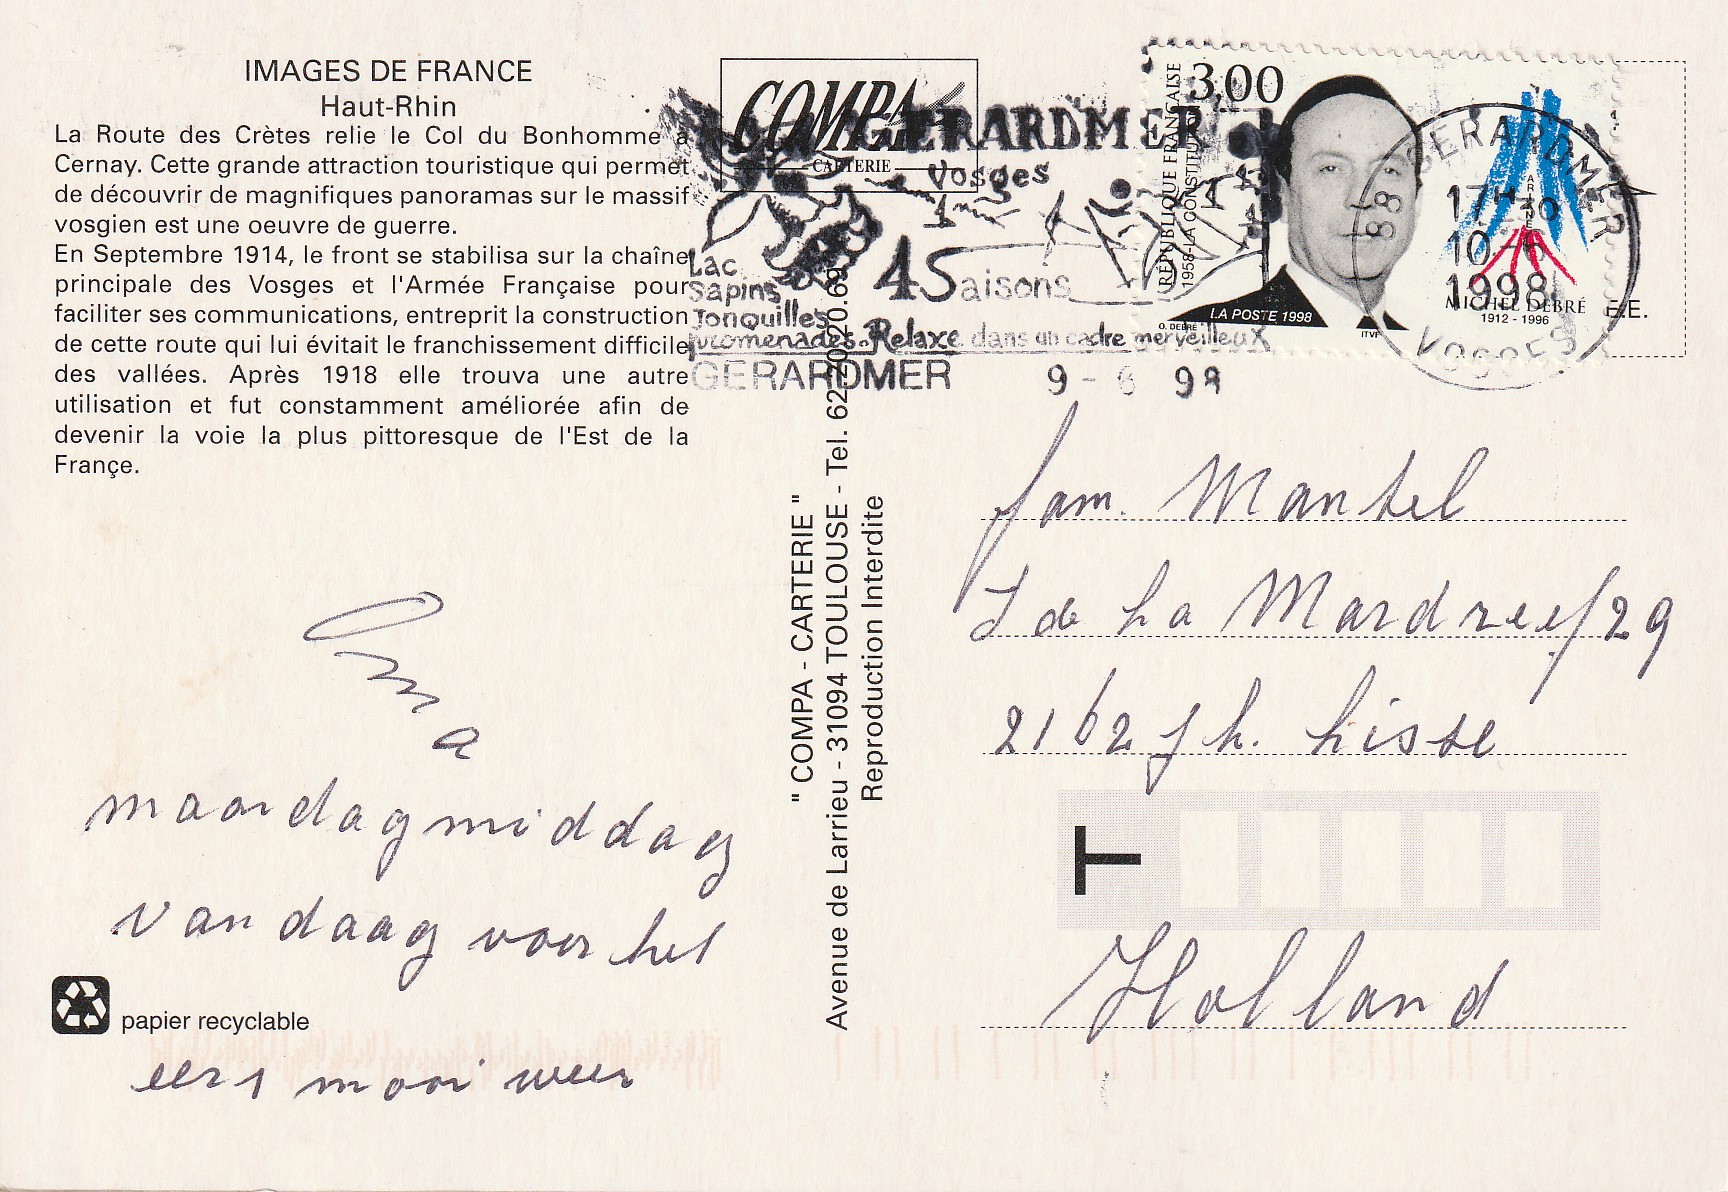 IMAGES DE FRANCE
Haut-Rhin
La Route des Crètes relie le Col du Bonhomme à
Cernay. Cette grande attraction touristique qui permet
de découvrir de magnifiques panoramas sur le massif
vosgien est une oeuvre de guerre.
En Septembre 1914, le front se stabilisa sur la chaîne
principale des Vosges et l'Armée Française pour
faciliter ses communications, entreprit la construction
de cette route qui lui évitait le franchissement difficile
des vallées. Après 1918 elle trouva une autre
utilisation et fut constamment améliorée afin de
devenir la voie la plus pittoresque de l'Est de la
Françe.
Oma
maandagmiddag
vandaag voor het
papier recyclable
eerst mooi weer
" COMPA - CARTERIE "
Avenue de Larrieu - 31094 TOULOUSE - Tel. 62.20.20.69
Reproduction Interdite
COMPA
CARTERIE
GERARDMER
Vosges
Lac
Sapins
Jonquilles
promenades. Relaxe dans un cadre merveilleux
4 Saisons
GERARDMER 9 - 6 98
3,00
RÉPUBLIQUE FRANÇAISE
1958-LA CONSTITUTION
LA POSTE 1998
O. DEBRÉ
ITVF
MICHEL DEBRÉ
1912 - 1996
88 - GERARDMER
17H
10-6
1998
VOSGES
E.E.
fam. Mantel
J de La Mardreef 29
2162 Jh. Lisse
T
Holland